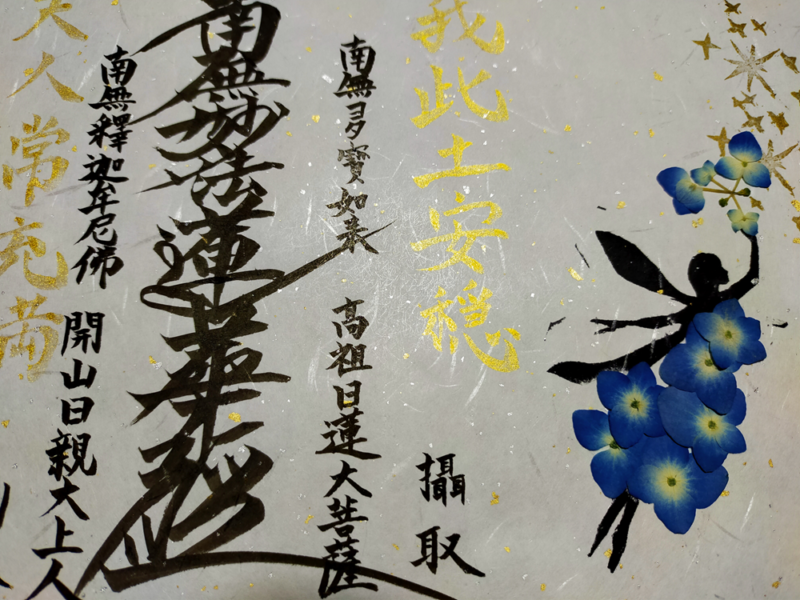 我此土安穏
攝取
南無多寶如来
高祖日蓮大菩薩
南無妙法蓮華経
南無釋迦牟尼佛
開山日親大上人
天人常充満